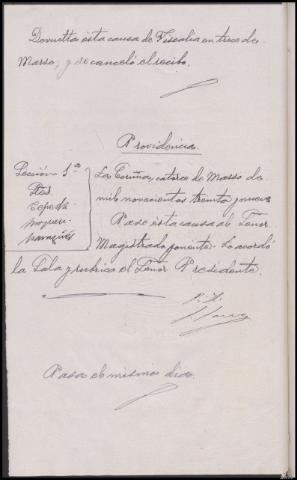 Devuelta esta causa de Fiscalia en trece de
Marzo, y se canceló el recibo.
Providencia
Sección 1ª
Stes
Cepeda
La Coruña, catorce de Marzo de
mil novecientos treinta y nueve
Pase esta causa al Señor
Magistrado ponente. Lo acordó
la Sala y rubrica el Señor Presidente.
Pasa el mismo dia.